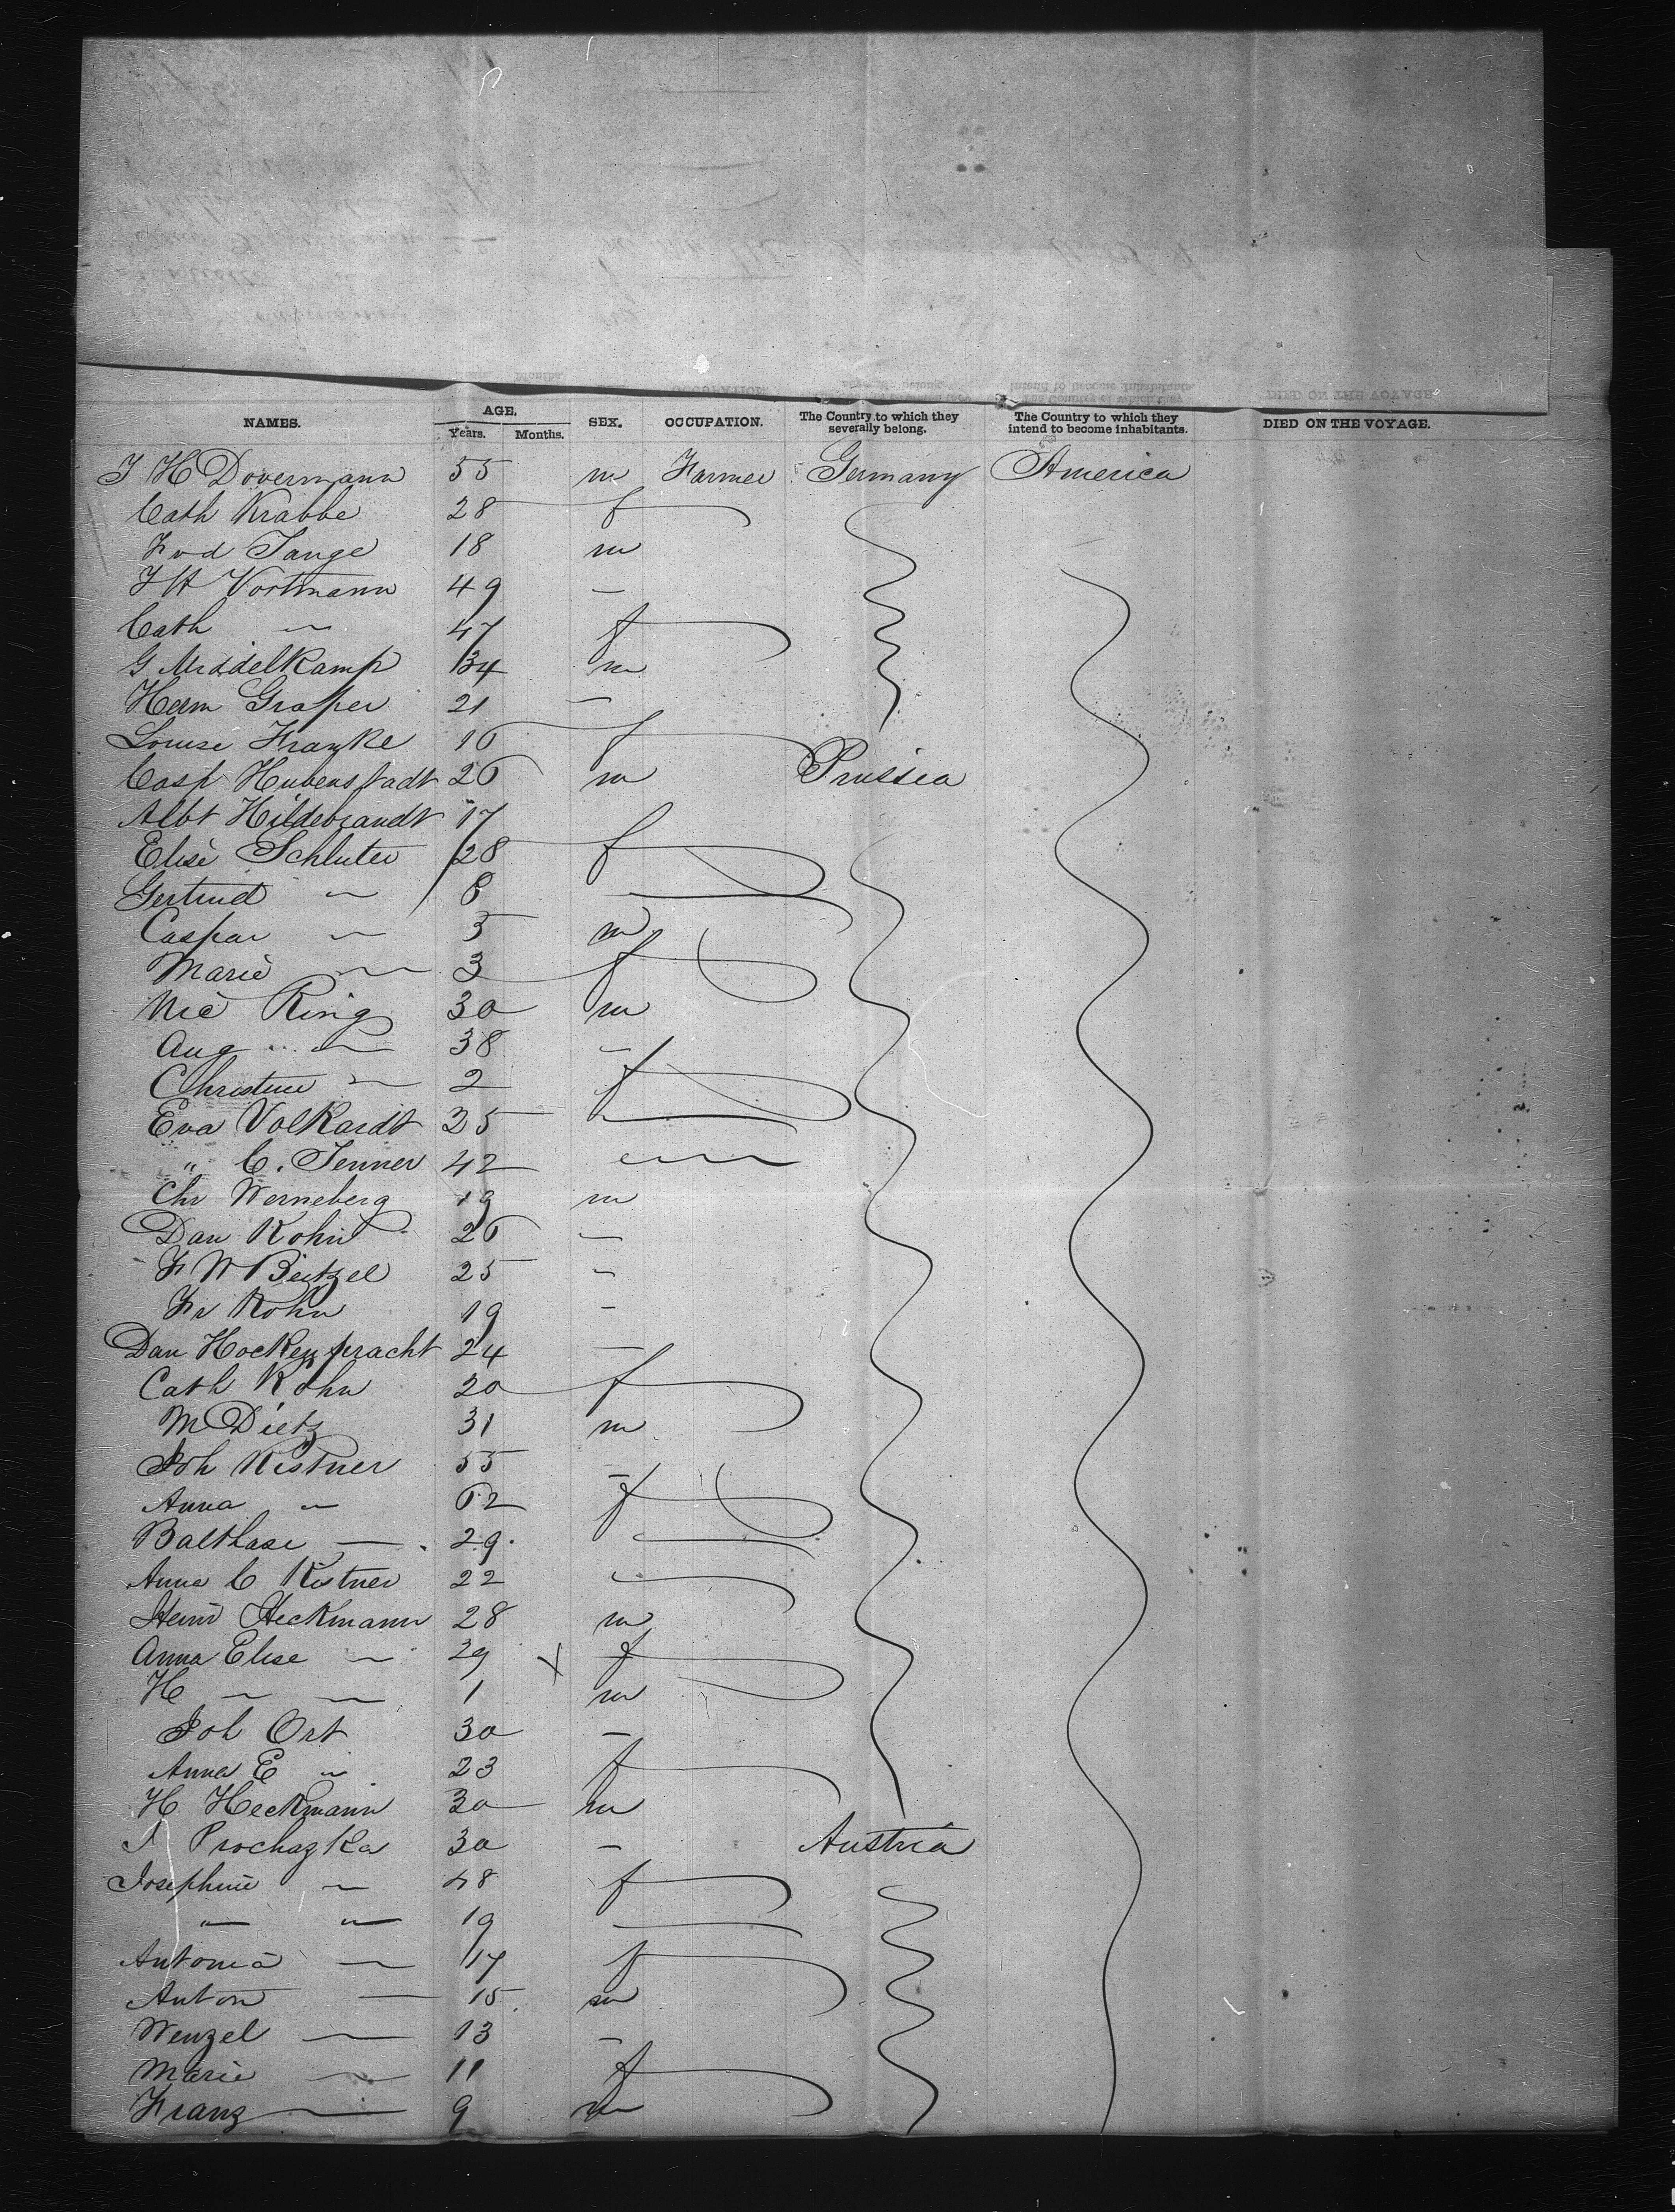 NAMES. AGE. Years. Months. SEX. OCCUPATION. The Country to which they severally belong. The Country to which they intend to become inhabitants. DIED ON THE VOYAGE.
J H Dovermann 55 m Farmer Germany America
Cath Krabbe 28 f
Frd Tange 18 m
J H Vortmann 49 —
Cath " 47 f
G Middelkamp 34 m
Herm Graper 21 —
Louise Franke 16 f
Casp Hubenstadt 26 m Prussia
Albt Hildebrandt 17
Elise Schluter 28 f
Gertrud " 8
Caspar " 5 m
Marie " 3 f
Nic Ring 30 m
Aug " 38 —
Christine " 2 f
Eva Volkardt 25
" C. Jenner 42
Chr Werneberg 19 m
Dan Kohn 26 —
F W Beitzel 25 —
Fr Kohn 19 —
Dan Hockenpracht 24 —
Cath Kohn 20 f
M Dietz 31 m
Joh Kistner 55 —
Anna " 62 f
Balthase — 29
Anna C Kistner 22
Heinr Heckmann 28 m
Anna Elise " 29 X f
H " " 1 m
Joh Ort 30 —
Anna E " 23 f
H Heckmann 30 m
J Prochazka 30 — Austria
Josephine " 48 f
" " 19
Antonia — 17 f
Anton — 15 m
Wenzel — 13 —
Marie — 11 f
Franz — 9 m